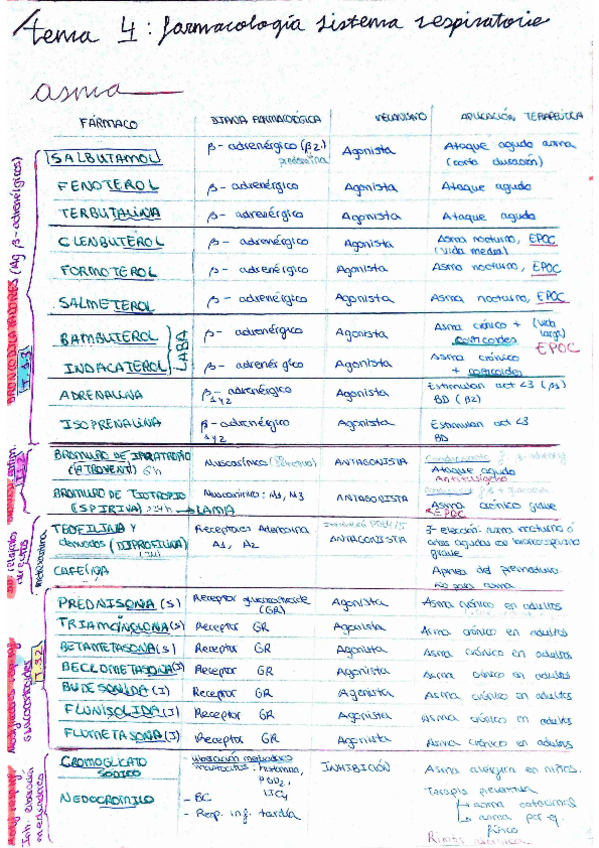 tema 4: farmacología sistema respiratorio
asma
FÁRMACO DIANA FARMACOLÓGICA MECANISMO APLICACIÓN TERAPÉUTICA
SALBUTAMOL β-adrenérgico (β2) Agonista Ataque agudo asma
(corta duración)
FENOTEROL β-adrenérgico Agonista Ataque agudo
TERBUTALINA β-adrenérgico Agonista Ataque agudo
CLENBUTEROL β-adrenérgico Agonista Asma nocturno, EPOC
(vida media)
FORMOTEROL β-adrenérgico Agonista Asma nocturno, EPOC
SALMETEROL β-adrenérgico Agonista Asma nocturno, EPOC
BAMBUTEROL β-adrenérgico Agonista Asma crónico + (vida larga)
corticoides
EPOC
INDACATEROL β-adrenérgico Agonista Asma crónico
+ corticoides
LABA
ADRENALINA β-adrenérgico Agonista Estimulan act <3 (β1)
1y2 BD (β2)
ISOPRENALINA β-adrenérgico Agonista Estimulan act <3
1y2 BD
BRONCODILATADORES (Ag β-adrenérgicos)
BROMURO DE IPRATROPIO Muscarínico ANTAGONISTA
(ATROVENT) 6h Ataque agudo
BROMURO DE TIOTROPIO Muscarínico: M1, M3 ANTAGONISTA
(ESPIRIVA) >24h → LAMA Asma crónico grave
EPOC
TEOFILINA y Receptores Adenosina 3ª elección asma nocturno o
derivados (DIPROFILINA) A1, A2 ANTAGONISTA crisis agudas de broncoespasmo
grave
CAFEÍNA Apnea del prematuro
No para asma
metilxantinas
PREDNISONA (S) Receptor glucocorticoide Agonista Asma crónico en adultos
(GR)
TRIAMCINOLONA (S) Receptor GR Agonista Asma crónico en adultos
BETAMETASONA (S) Receptor GR Agonista Asma crónico en adultos
BECLOMETASONA (I) Receptor GR Agonista Asma crónico en adultos
BUDESONIDA (I) Receptor GR Agonista Asma crónico en adultos
FLUNISOLIDA (I) Receptor GR Agonista Asma crónico en adultos
FLUMETASONA (I) Receptor GR Agonista Asma crónico en adultos
glucocorticoides
CROMOGLICATO liberación mediadores INHIBICIÓN Asma alérgico en niños.
SÓDICO histamina,
PGD2,
LTC4
NEDOCROMILO - BC Terapia preventiva
- Resp. inf. tardía → asma estacional
→ asma por ej.
físico
Inh. liberación
mediadores